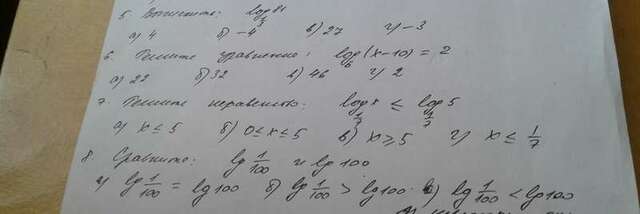 5. Вычислите: log_{1/3} 81
а) 4 б) -4 в) 27 г) -3
6. Решите уравнение: log_6 (x-10) = 2
а) 22 б) 32 в) 46 г) 2
7. Решите неравенство: log_{1/7} x ≤ log_{1/7} 5
а) x ≤ 5 б) 0 ≤ x ≤ 5 в) x ≥ 5 г) x ≤ 1/7
8. Сравните: lg 1/100 и lg 100
а) lg 1/100 = lg 100 б) lg 1/100 > lg 100 в) lg 1/100 < lg 100